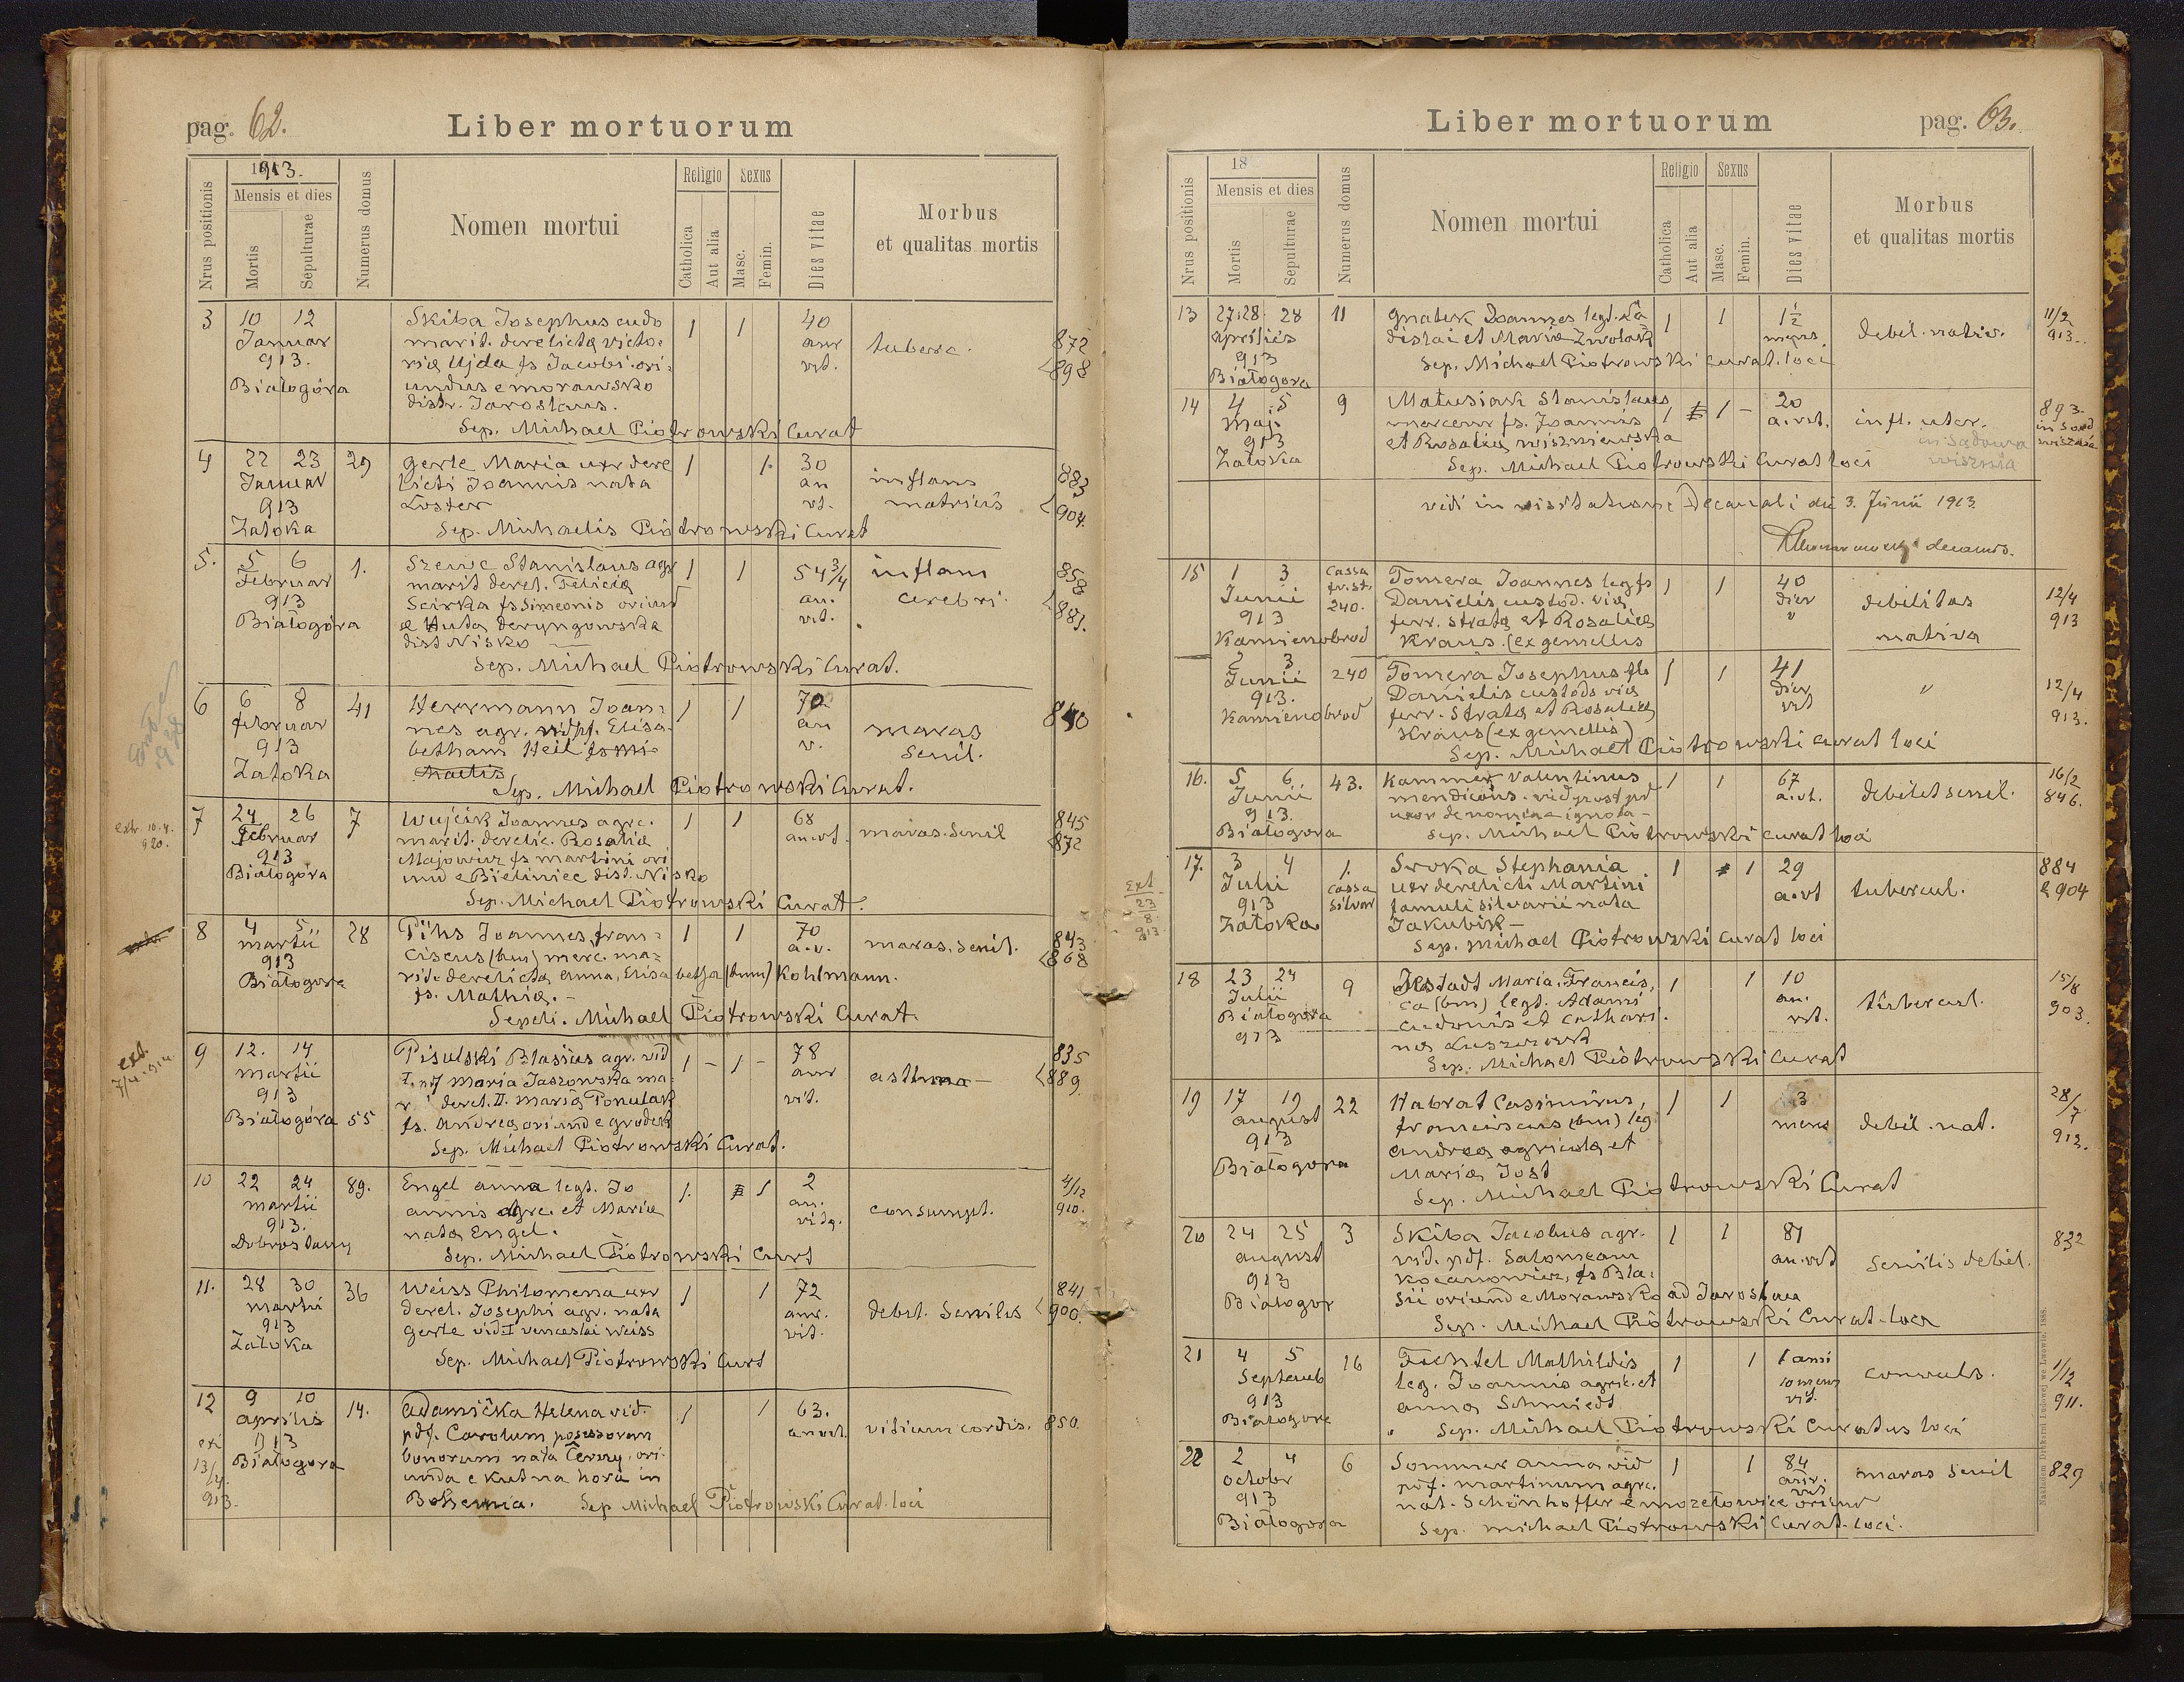 pag. 62.
Liber mortuorum
1913.
Nrus positionis
Mensis et dies
Mortis
Sepulturae
Numerus domus
Nomen mortui
Religio
Catholica
Aut alia
Sexus
Masc.
Femin.
Dies vitae
Morbus
et qualitas mortis
3 10 12 Skiba Josephus cudo 1 1 40
Januar marit. derelicta victo= ann tuberc. 872
913. ria Ujda fs Jacobi ori= vit. 898
Białogóra undus e morawsko
distr. Jaroslaus.
Sep. Michael Piotrowski Curat
4 22 23 29 Gerle Maria uxr dere 1 1. 30
Januar licti Joannis nata an inflam 883
913 Loster vt. matricis 904.
Zatoka Sep. Michaelis Piotrowski Curat
5. 5 6 1. Szewc Stanislaus agr 1 1 54 3/4 inflam 858
Februar marit derel. Felicia an. cerebri. 881.
913 Scirka fs Simeonis oriund vit.
Białogóra e Huta deryngowska
dist Nisko
Sep. Michael Piotrowski Curat.
6 6 8 41 Herrmann Joan= 1 1 70
februar nes agr. vid pf. Elisa= an maras 840
913 betham Heil fs Mi= v. Senil.
Zatoka chaelis
Sep. Michael Piotrowski Curat.
extr. 10.4.
920.
7 24 26 7 Wujcik Joannes agrc. 1 1 68 845
Februar marit. derelic. Rosalia an.vt. maras. Senil 872
913 Majowicz fs martini ori
Białogóra und e Bieliniec dist. Nisko
Sep. Michael Piotrowski Curat.
8 4 5 28 Pihs Joannes, fran= 1 1 70 843
martii ciscus (bin) merc. ma= a.v. maras. senil. 868
913 rit. derelicta anna, Elisabetha (bnm) Kohlmann.
Białogora fs. Mathiæ.
Sepeli. Michael Piotrowski Curat.
ext.
7/4. 914
9 12. 14 Pisulski Blasius agr. vid 1 - 1 - 78 835
martii I. pdf Maria Jaszowska ma= ann asthma - 889.
913 derel. II. Maria Ponulak vit.
Białogóra 55 fs. Andrea oriund e grodek
Sep. Michael Piotrowski Curat.
10 22 24 89. Engel anna legt. Jo 1. 1 2 4/12
martii annis agrc. et Maria an. consumpt. 910.
913. nata Engel. vita.
Dobrostany Sep. Michael Piotrowski Curt
11. 28 30 36 Weiss Philomena uxr 1 1 72 841
martii derel. Josephi agr. nata anr. debil. Senilis 900.
913 Gerle vid I venceslai Weiss vit.
Zatoka Sep. Michael Piotrowski Curt
12 9 10 14. Adamička Helena vid. 1 1 63.
aprilis pdf. Carolum possessorem an vit. vitium cordis. 850.
913 bonorum nata Černy, ori=
Białogora unda e Kutna hora in
Bohemia. Sep Michael Piotrowski Curat. loci
ext
13/
913.
Liber mortuorum
pag. 63.
18
Nrus positionis
Mensis et dies
Mortis
Sepulturae
Numerus domus
Nomen mortui
Religio
Catholica
Aut alia
Sexus
Masc.
Femin.
Dies vitae
Morbus
et qualitas mortis
13 27.28 28 11 Gnatek Joannes legt. La 1 1 1½ 11/2
aprilis dislai et Maria Zwolak mens. debil. nativ. 913.
913 Sep. Michael Piotrowski curat. loci
Białogora
14 4 5 9 Matusiak Stanislaus 1 1 - 20 893.
maj. mercenr fs. Joannis a.vit. infl. uter.
913 et Rosalia wiszniewska in Sądowa
Zatoka Sep. Michael Piotrowski Curat loci wisznia
vidi in visitatione Decanali die 3. Junii 1913.
decanus.
15 1 3 cassa Tomera Joannes leg fs 1 1 40
Junii fr.st. Danielis custod. via dier debilitas 12/4
913 240. ferr. strata et Rosalia v 913
Kamienobrod Kraus. (ex gemellis nativa
2 3 240 Tomera Josephus fls 1 1 41
Junii Danielis custods via dier " 12/4
913. ferr. strata et Rosalia vit 913.
Kamienobrod Kraus (ex gemellis)
Sep. Michael Piotrowski curat loci
16. 5 6 43. Kammer Valentinus 1 1 67 16/2
Junii mendicus. vid post pd a.vt. debilit senil. 846.
913. uxor de nomine ignota -
Białogora Sep. Michael Piotrowski curat loci
Ext
23
8
913
17. 3 4 1. Sroka Stephania 1 1 29 884
Julii cassa uxr derelicti Martini a.vt tubercul. 904
913 silvar famuli silvarii nata
Zatoka Jakubik -
Sep. Michael Piotrowski Curat loci
18 23 24 9 Maria, Francis, 1 1 10 15/8
Julii ca (bm) legt. Adami an. tubercul. 903.
Białogora cudonis et Cathari. vit.
913 na
Sep. Michael Piotrowski Curat
19 17 19 22 Habrat Casimirus, 1 1 3 28/7
august franciscus (bm) leg mens debil. nat. 912.
913 Andrea agricola et
Białogora Maria Jost
Sep. Michael Piotrowski Curat
20 24 25 3 Skiba Jacobus agr. 1 1 81 832
august vid. pdf. Salomeam an.vit senilis debil.
913 Kocanowicz, fs Bla=
Białogor sii oriund e Morawsko ad Jaroslau
Sep. Michael Piotrowski Curat. loci
21 4 5 16 Fechtel Mathildis 1 1 1 anni
Septemb leg. Joannis agric. et 10 mens convuls. 1/12
913 anna Schmiedt vit. 911.
Białogora Sep. Michael Piotrowski Curatus loci
22 2 4 6 Sommer anna vid 1 1 84
octobr pdf. martinum agrc. anr. maras senil 829
913 nat. Schönhoffer e mozełowice oriund vit
Białogora Sep. Michael Piotrowski Curat. loci.
Nakładem Drukarni Ludowej we Lwowie. 1888.